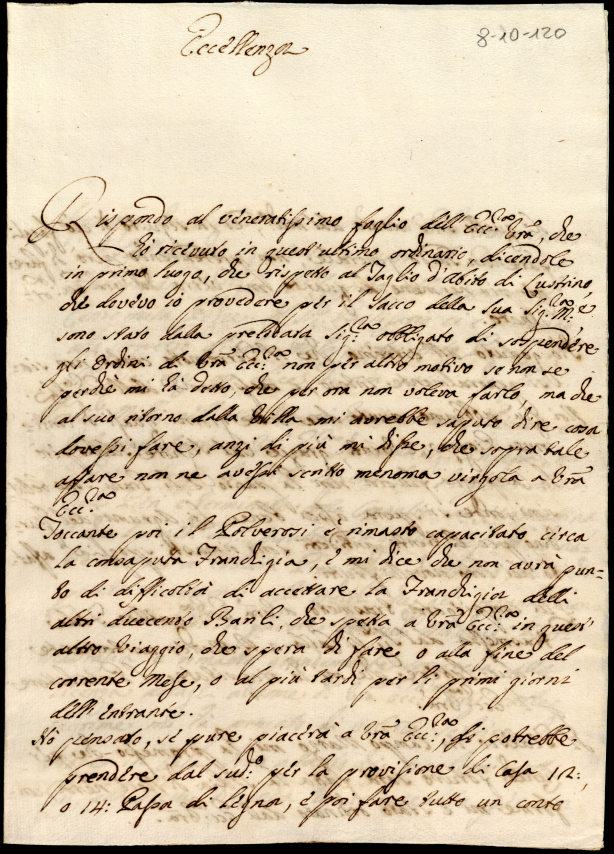 8-10-120
Eccellenza
Rispondo al veneratissimo foglio dell'Ecc:za Vra, che
hò ricevuto in quest'ultimo ordinario, dicendole
in primo luogo, che rispetto al Taglio d'Abito di Lustrino,
che dovevo io provedere per il sacco della sua Sig:ra M:e
sono stato dalla prelodata Sig:ra obbligato di sospendere
gli ordini di Vra Ecc:za non per altro motivo se non se
perche mi hà detto, che per ora non voleva farlo, ma che
al suo ritorno dalla Villa mi avrebbe saputo dire cosa
dovessi fare, anzi di più mi disse, che sopra tale
affare non ne avessi scritto menoma virgola a Vra
Ecc:za
Toccante poi il Polverosi è rimasto capacitato circa
la consaputa Franchigia, e mi dice che non avrà pun=
to di difficoltà di accettare la Franchigia delli
altri duecento Barili, che spetta a Vra Ecc:za in quest'
altro Viaggio, che spera di fare o alla fine del
corrente Mese, o al più tardi per li primi giorni
dell'Entrante.
Hò pensato, se pure piacerà a Vra Ecc:za, si potrebbe
prendere dal sud:o per la provisione di Casa 12:
o 14: Passa di Legna, e poi fare tutto un conto